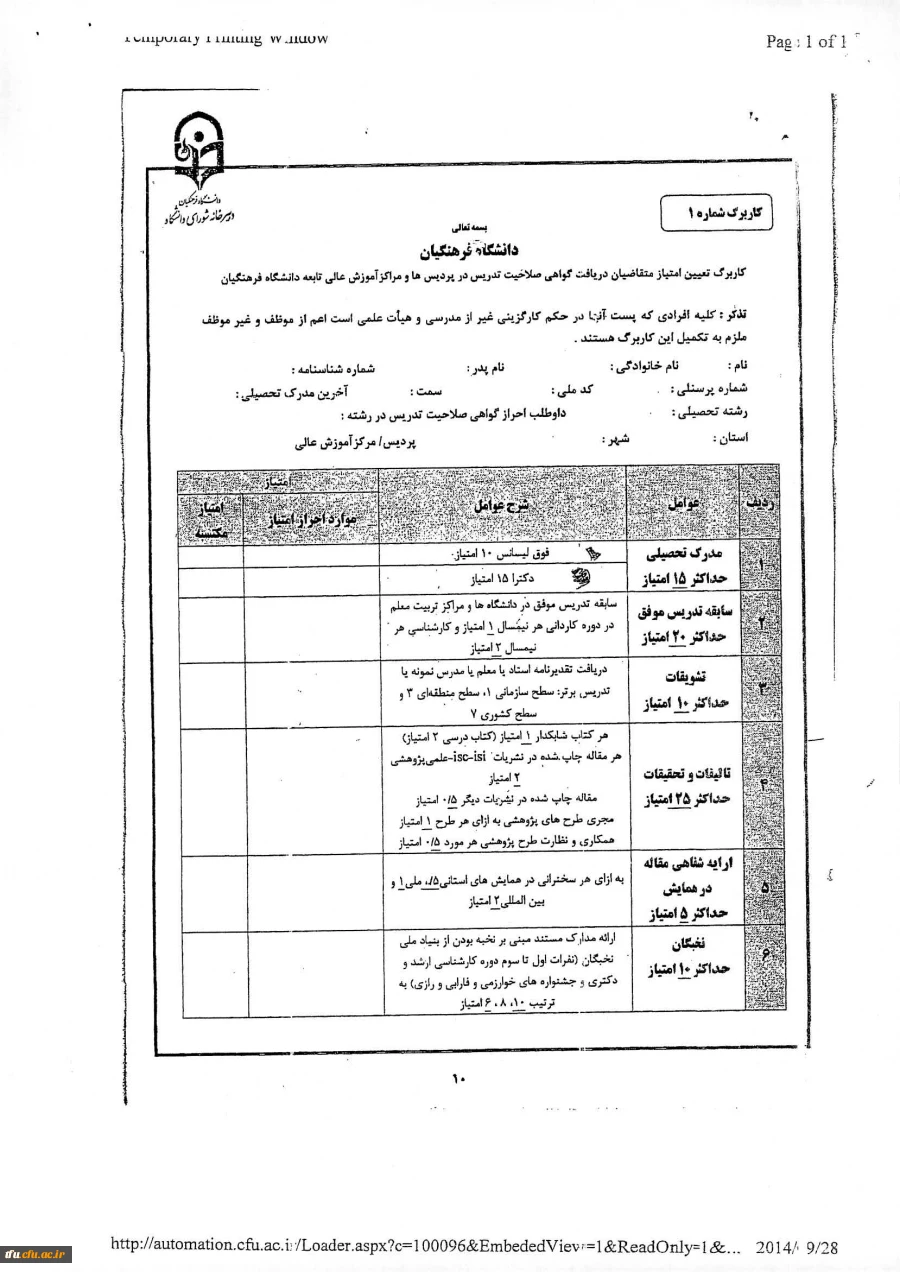 Temporary Printing Window
Page 1 of 1
دانشگاه فرهنگیان
دبیرخانه شورای دانشگاه
کاربرگ شماره ۱
بسمه تعالی
دانشگاه فرهنگیان
کاربرگ تعیین امتیاز متقاضیان دریافت گواهی صلاحیت تدریس در پردیس ها و مراکز آموزش عالی تابعه دانشگاه فرهنگیان
تذکر : کلیه افرادی که پست آنها در حکم کارگزینی غیر از مدرسی و هیأت علمی است اعم از موظف و غیر موظف
ملزم به تکمیل این کاربرگ هستند .
نام : نام خانوادگی : نام پدر : شماره شناسنامه :
شماره پرسنلی : کد ملی : سمت : آخرین مدرک تحصیلی :
رشته تحصیلی : داوطلب احراز گواهی صلاحیت تدریس در رشته :
استان : شهر : پردیس/ مرکز آموزش عالی
ردیف عوامل شرح عوامل امتیاز
موارد احراز امتیاز امتیاز مکتسبه
۱ مدرک تحصیلی
حداکثر ۱۵ امتیاز
فوق لیسانس ۱۰ امتیاز
دکترا ۱۵ امتیاز
۲ سابقه تدریس موفق
حداکثر ۲۰ امتیاز
سابقه تدریس موفق در دانشگاه ها و مراکز تربیت معلم
در دوره کاردانی هر نیمسال ۱ امتیاز و کارشناسی هر
نیمسال ۲ امتیاز
۳ تشویقات
حداکثر ۱۰ امتیاز
دریافت تقدیرنامه استاد یا معلم یا مدرس نمونه یا
تدریس برتر: سطح سازمانی ۱، سطح منطقه‌ای ۳ و
سطح کشوری ۷
۴ تالیفات و تحقیقات
حداکثر ۲۵ امتیاز
هر کتاب شابکدار ۱ امتیاز (کتاب درسی ۲ امتیاز)
هر مقاله چاپ شده در نشریات isc-isi-علمی پژوهشی
۲ امتیاز
مقاله چاپ شده در نشریات دیگر ۰/۵ امتیاز
مجری طرح های پژوهشی به ازای هر طرح ۱ امتیاز
همکاری و نظارت طرح پژوهشی هر مورد ۰/۵ امتیاز
۵ ارایه شفاهی مقاله
در همایش
حداکثر ۵ امتیاز
به ازای هر سخنرانی در همایش های استانی ۰/۵، ملی ۱ و
بین المللی ۲ امتیاز
۶ نخبگان
حداکثر ۱۰ امتیاز
ارائه مدارک مستند مبنی بر نخبه بودن از بنیاد ملی
نخبگان (نفرات اول تا سوم دوره کارشناسی ارشد و
دکتری و جشنواره های خوارزمی و فارابی و رازی) به
ترتیب ۱۰، ۸، ۶ امتیاز
۱۰
http://automation.cfu.ac.ir/Loader.aspx?c=100096&EmbededView=1&ReadOnly=1&... 2014/09/28
tfu.cfu.ac.ir